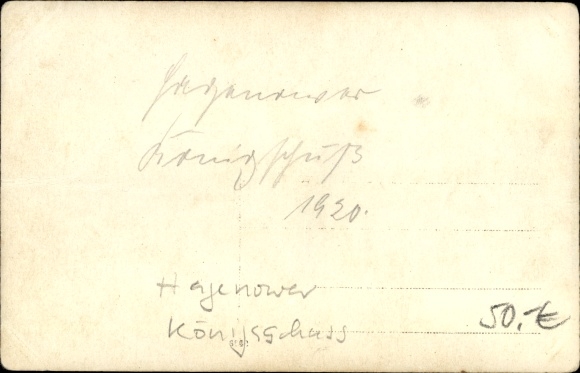 Hagenower
Königschuß
1920.
Hagenower
Königsschuss
50,-€